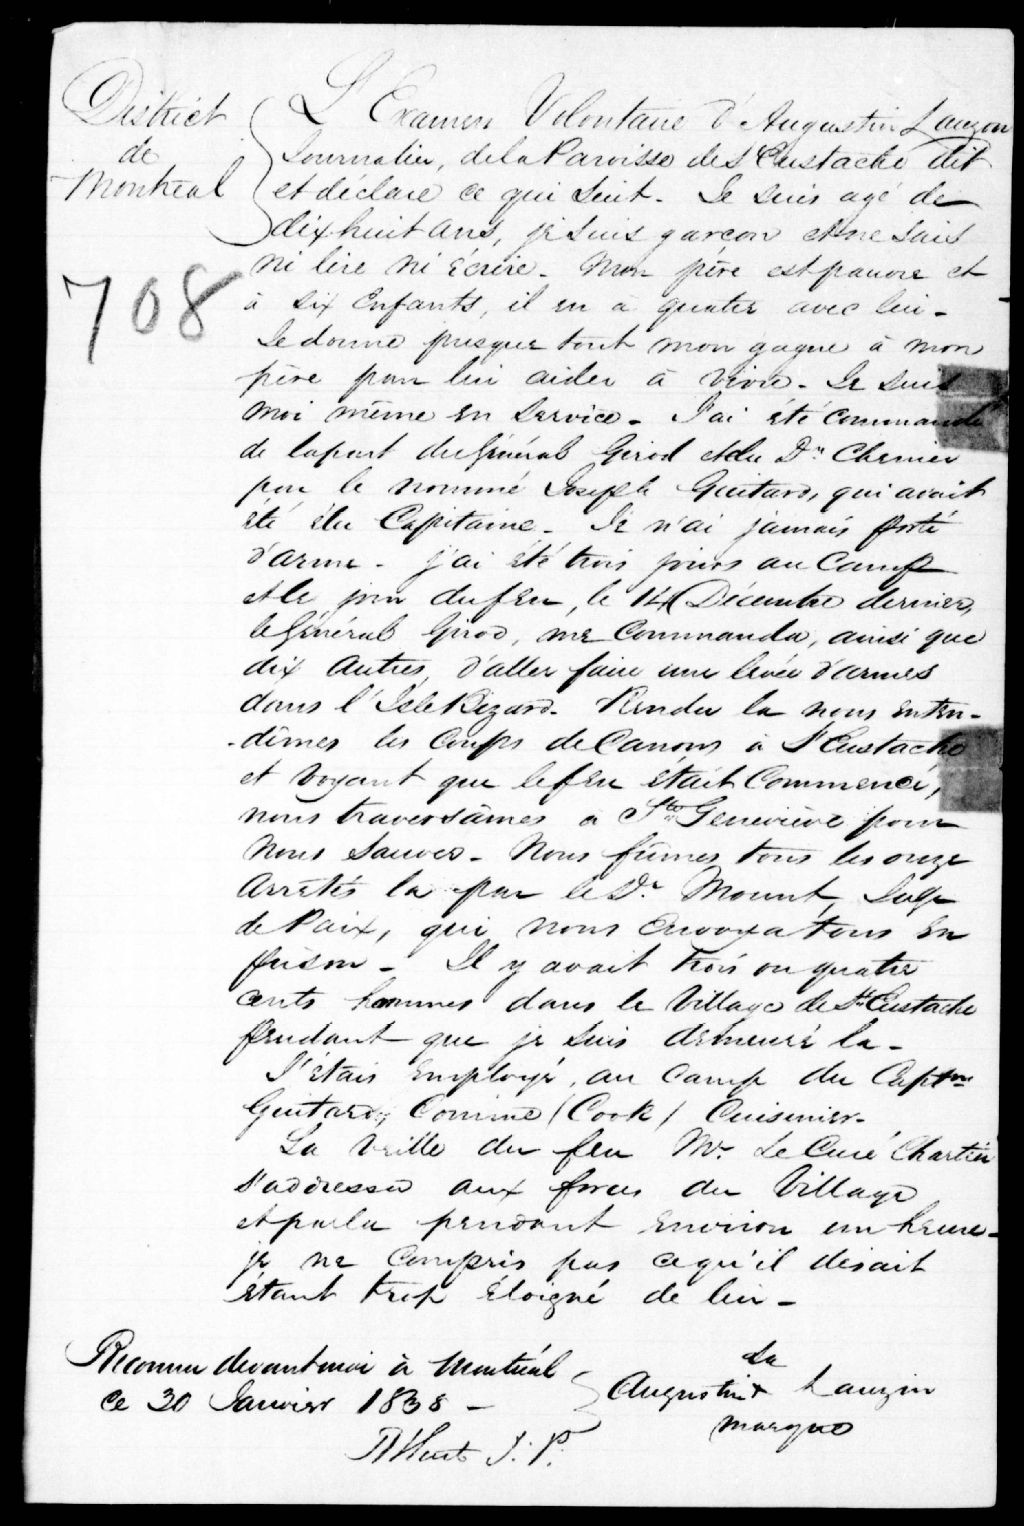 District
de
Montréal
708
L'Examen Volontaire d'Augustin Lauzon
Journalier, de la Paroisse de St Eustache dit
et déclare ce qui suit. Je suis agé de
dix huit ans, je suis garcon et ne sais
ni lire ni écrire. Mon père est pauvre et
à six enfants, il en à quatre avec lui.
Je donne presque tout mon gagne à mon
père pour lui aider à vivre. Je suis
moi même en service. J'ai été commandé
de la part du Général Girod et du Dr. Chenier
par le nommé Joseph Guitard, qui avait
été élu Capitaine. Je n'ai jamais porté
d'arme. j'ai été trois jours au Camp
et le jour du feu, le 14 Décembre dernier,
le Général Girod, me commanda, ainsi que
dix autres, d'aller faire une levée d'armes
dans l'Isle Bizard. Rendu la nous enten-
-dîmes les coups de Canons à St Eustache
et voyant que le feu était Commencé,
nous traversâmes à Ste Geneviève pour
nous sauver. Nous fûmes tous les onze
arrêtés la par le Dr. Mount, Juge
de Paix, qui nous envoya tous en
prison. Il y avait trois ou quatre
cents hommes dans le Village de St. Eustache
pendant que je suis demeuré la.
J'étais employé, au camp du Captne
Guitard, Comme (Cook) Cuisinier.
La veille du feu Mr. Le Curé Chartier
s'adressa aux forces du Village
et parla pendant environ un heure.
je ne compris pas ce qu'il disait
étant trop éloigné de lui.
Reconnu devant moi à Montréal
ce 20 Janvier 1838
la
Augustin + Lauzon
marque
J. P.